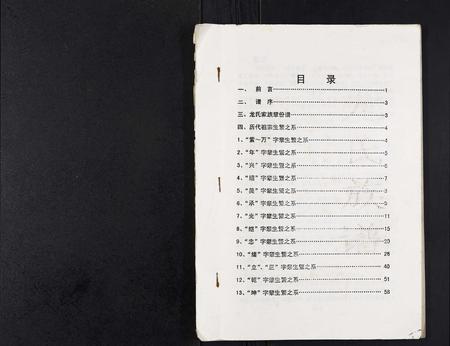 目 录
一、 前 言 1
二、 谱 序 3
三、龙氏家族辈份谱 3
四、历代祖宗生繁之系 4
1、“紫～万”字辈生繁之系 4
2、“年”字辈生繁之系 5
3、“兴”字辈生繁之系 6
4、字辈生繁之系 7
5、字辈生繁之系 8
6、“承”字辈生繁之系 9
7、“光”字辈生繁之系 11
8、“继”字辈生繁之系 15
9、“忠”字辈生繁之系 20
10、字辈生繁之系 26
11、“立”、“正”字辈生繁之系 40
12、“乾”字辈生繁之系 51
13、“坤”字辈生繁之系 58